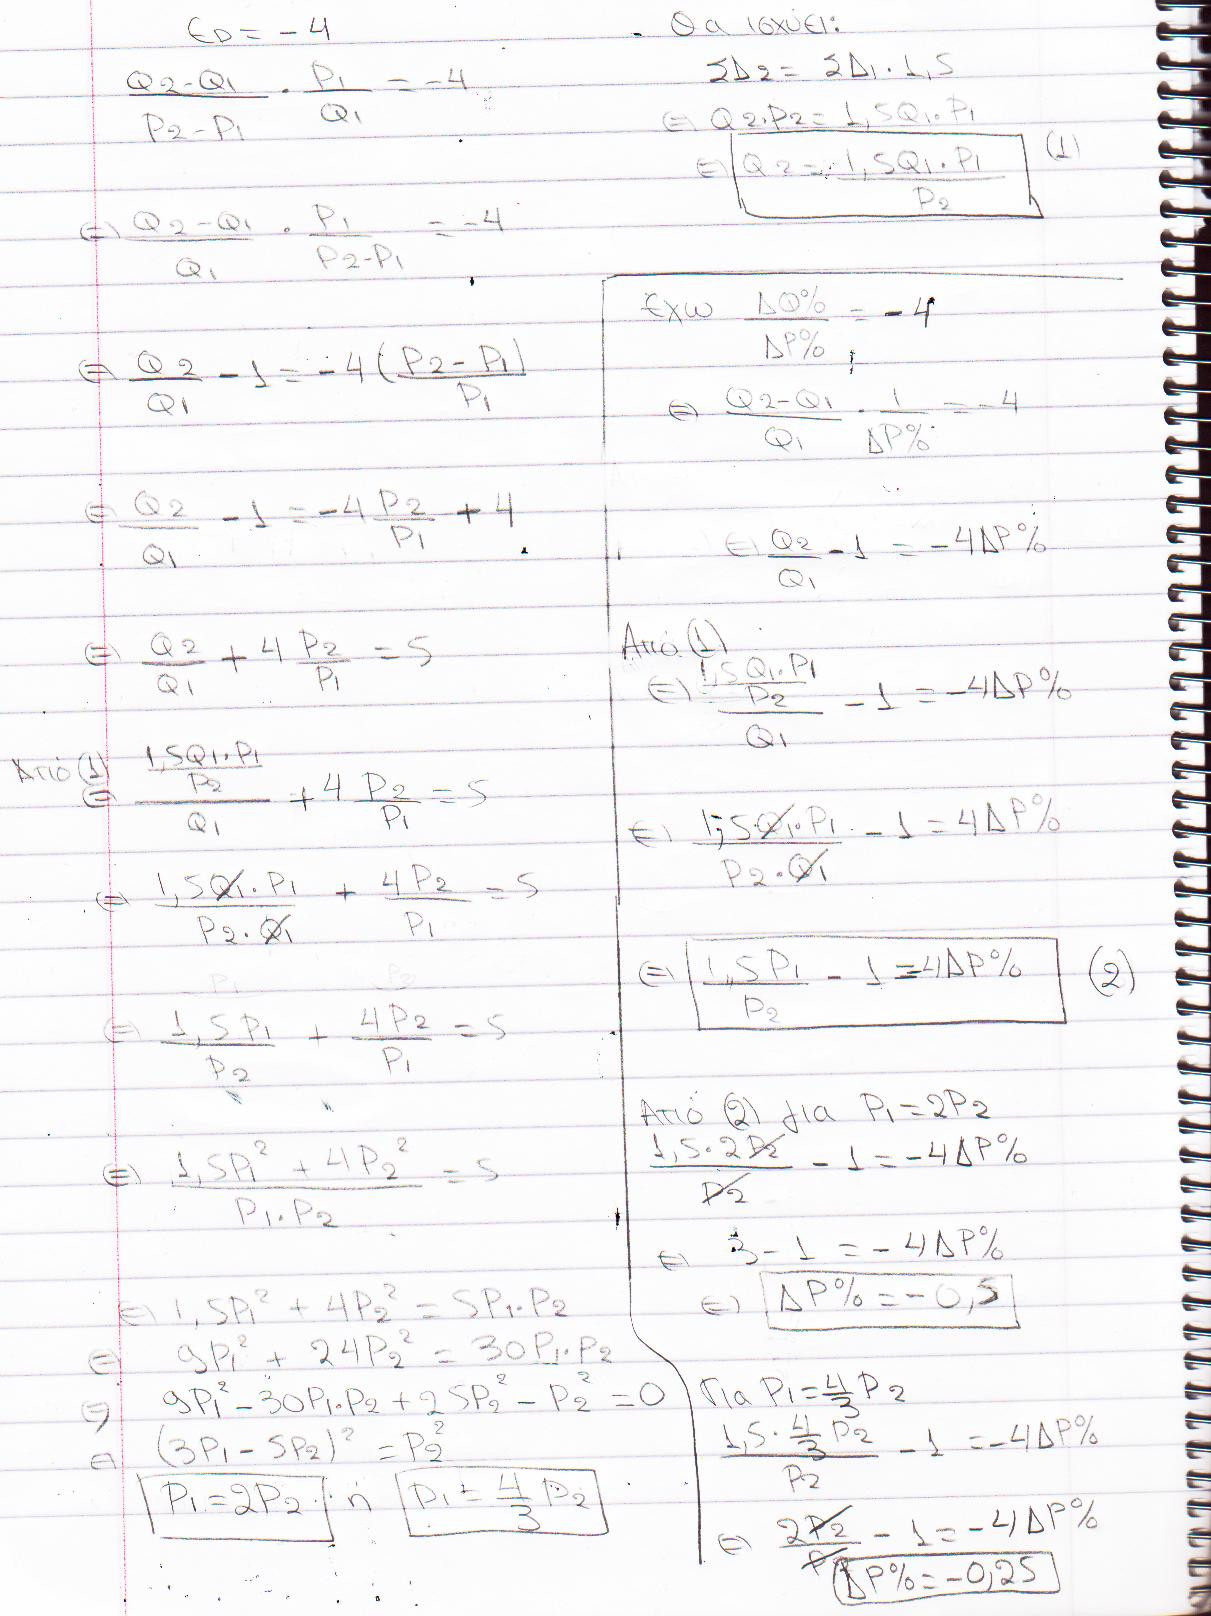 ED = -4
Q2-Q1/P2-P1 · P1/Q1 = -4
⇔ Q2-Q1/Q1 · P1/P2-P1 = -4
⇔ Q2/Q1 - 1 = -4(P2-P1/P1)
⇔ Q2/Q1 - 1 = -4 P2/P1 + 4
⇔ Q2/Q1 + 4 P2/P1 = 5
Από (1)
⇔ (1,5Q1·P1/P2)/Q1 + 4 P2/P1 = 5
⇔ 1,5Q1·P1/P2·Q1 + 4P2/P1 = 5
⇔ 1,5P1/P2 + 4P2/P1 = 5
⇔ 1,5P1² + 4P2²/P1·P2 = 5
⇔ 1,5P1² + 4P2² = 5P1·P2
⇔ 9P1² + 24P2² = 30P1·P2
⇔ 9P1² - 30P1·P2 + 25P2² - P2² = 0
⇔ (3P1 - 5P2)² = P2²
P1 = 2P2 ή P1 = 4/3 P2
Θα ισχύει:
ΣΔ2 = ΣΔ1·1,5
⇔ Q2·P2 = 1,5Q1·P1
⇔ Q2 = 1,5Q1·P1/P2 (1)
Έχω ΔQ%/ΔP% = -4
⇔ Q2-Q1/Q1 · 1/ΔP% = -4
⇔ Q2/Q1 - 1 = -4ΔP%
Από (1)
⇔ (1,5Q1·P1/P2)/Q1 - 1 = -4ΔP%
⇔ 1,5·Q1·P1/P2·Q1 - 1 = 4ΔP%
⇔ 1,5P1/P2 - 1 = 4ΔP% (2)
Από (2) για P1 = 2P2
1,5·2P2/P2 - 1 = -4ΔP%
⇔ 3 - 1 = -4ΔP%
⇔ ΔP% = -0,5
Για P1 = 4/3 P2
1,5·4/3 P2/P2 - 1 = -4ΔP%
⇔ 2P2/P2 - 1 = -4ΔP%
ΔP% = -0,25